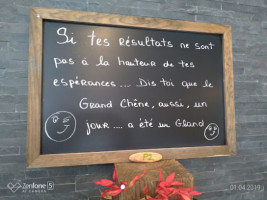 Si tes résultats ne sont
pas à la hauteur de tes
espérances.... Dis toi que le
Grand Chêne, aussi, un
jour.... a été un Gland
Zenfone 5
01.04.2019